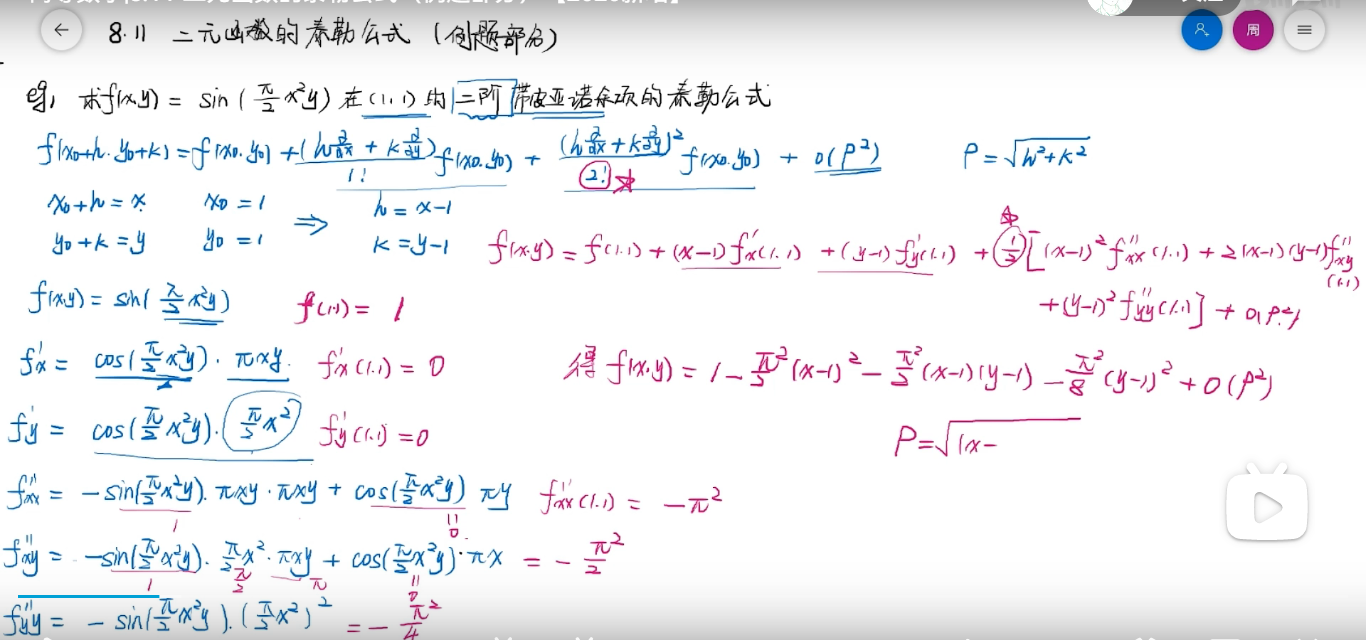 8.11 二元函数的泰勒公式 (例题部分)
周
例1 求f(x,y) = sin(π/2 x²y) 在(1,1)的二阶带皮亚诺余项的泰勒公式
f(x₀+h, y₀+k) = f(x₀,y₀) + (h ∂/∂x + k ∂/∂y)/1! f(x₀,y₀) + (h ∂/∂x + k ∂/∂y)²/2! f(x₀,y₀) + o(ρ²) ρ = √(h²+k²)
x₀+h = x x₀ = 1 ⇒ h = x-1
y₀+k = y y₀ = 1 k = y-1
f(x,y) = f(1,1) + (x-1)f'x(1,1) + (y-1)f'y(1,1) + 1/2[(x-1)²f''xx(1,1) + 2(x-1)(y-1)f''xy(1,1)
+(y-1)²f''yy(1,1)] + o(ρ²)
f(x,y) = sin(π/2 x²y) f(1,1) = 1
f'x = cos(π/2 x²y)·πxy f'x(1,1) = 0
得 f(x,y) = 1 - π²/2 (x-1)² - π²/2 (x-1)(y-1) - π²/8 (y-1)² + o(ρ²)
f'y = cos(π/2 x²y)·π/2 x² f'y(1,1) = 0
ρ = √(x-
f''xx = -sin(π/2 x²y)·πxy·πxy + cos(π/2 x²y) πy f''xx(1,1) = -π²
1 0
f''xy = -sin(π/2 x²y)·π/2 x²·πxy + cos(π/2 x²y)·πx = -π²/2
1 π/2 π 0
f''yy = -sin(π/2 x²y)·(π/2 x²)² = -π²/4